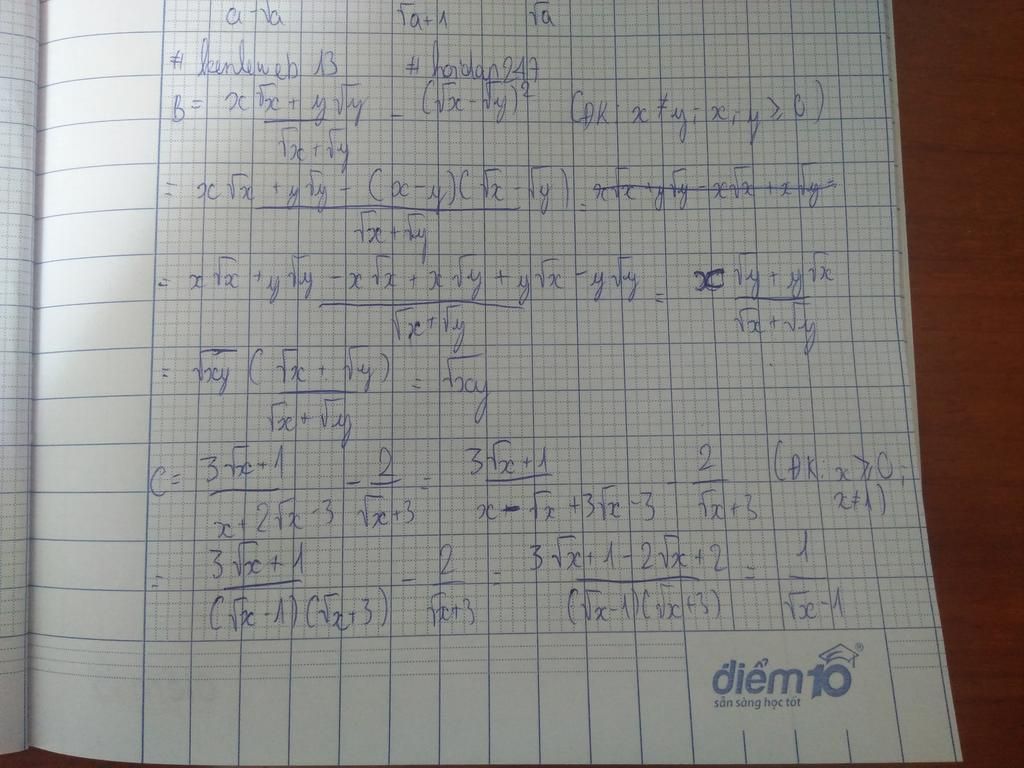 a - √a √a + 1 √a
13 # hoidap247
B = (x√x + y√y)/(√x + √y) - (√x - √y)² (ĐK: x ≠ y; x, y ≥ 0)
= (x√x + y√y - (x - y)(√x - √y))/(√x + √y) = x√x + y√y - x√x + x√y =
= (x√x + y√y - x√x + x√y + y√x - y√y)/(√x + √y) = (x√y + y√x)/(√x + √y)
= √xy (√x + √y)/(√x + √y) = √xy
C = (3√x + 1)/(x + 2√x - 3) - 2/(√x + 3) = (3√x + 1)/(x - √x + 3√x - 3) - 2/(√x + 3) (ĐK: x ≥ 0; x ≠ 1)
= (3√x + 1)/((√x - 1)(√x + 3)) - 2/(√x + 3) = (3√x + 1 - 2√x + 2)/((√x - 1)(√x + 3)) = 1/(√x - 1)
điểm10®
sẵn sàng học tốt